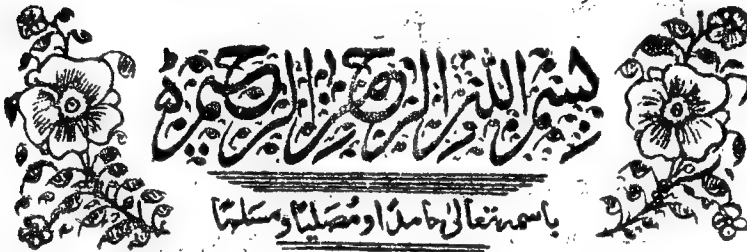 بسم الله الرحمن الرحيم
باسمہ تعالیٰ حامدًا و مُصلّیًا و مسلّمًا